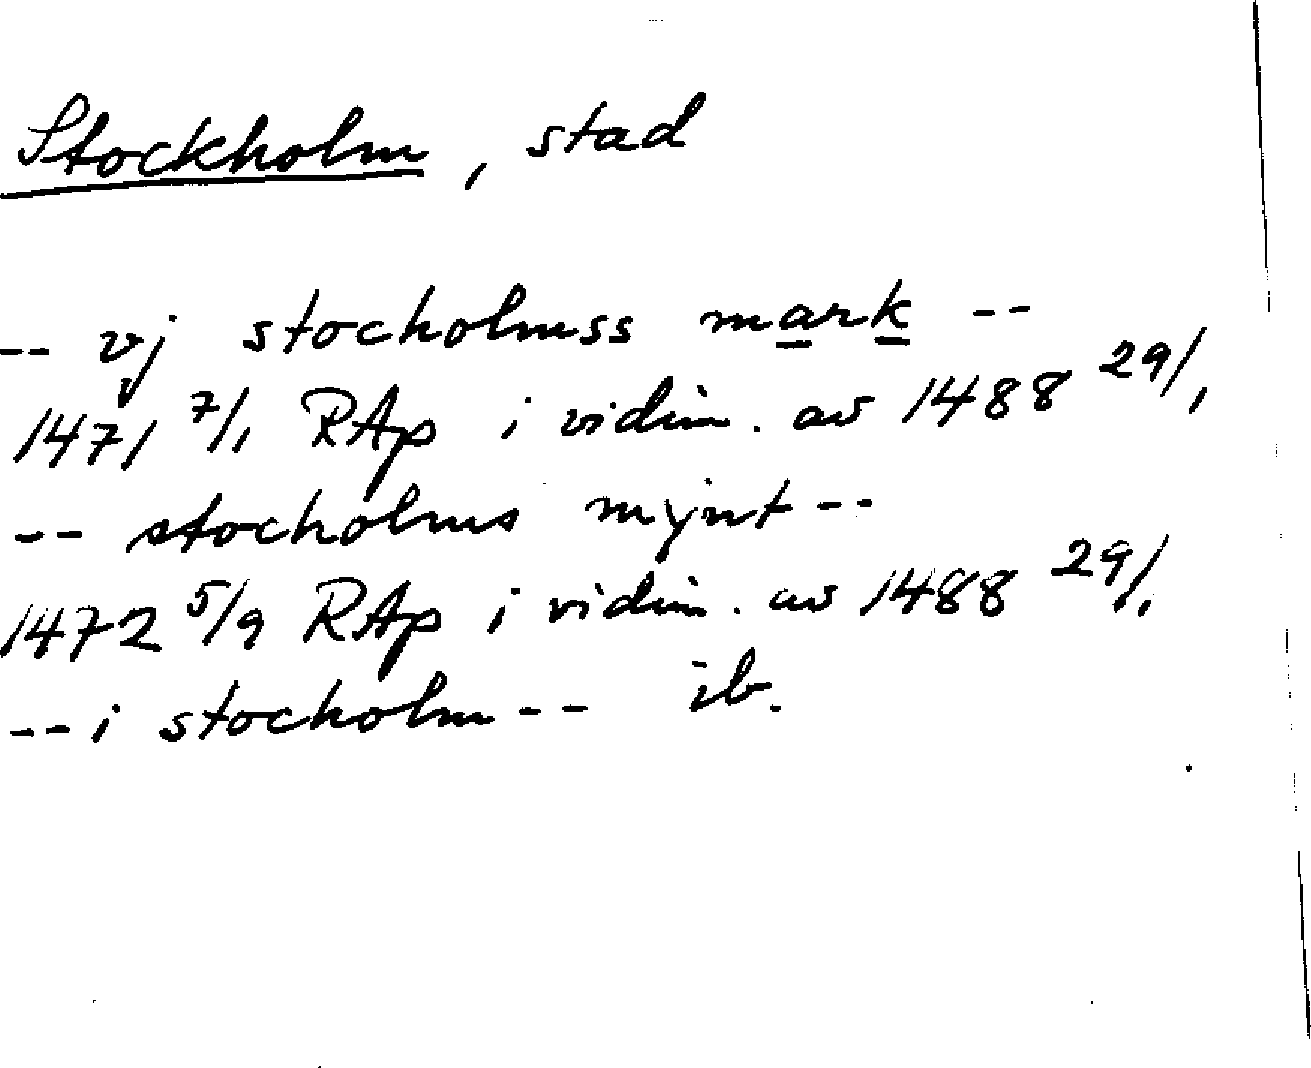 Stockholm, stad
-- vj stocholmss mark --
1471 7/1 RAp i vidim. av 1488 29/1
-- stocholms mynt --
1472 5/9 RAp i vidim. av 1488 29/1
-- i stocholm -- ib.